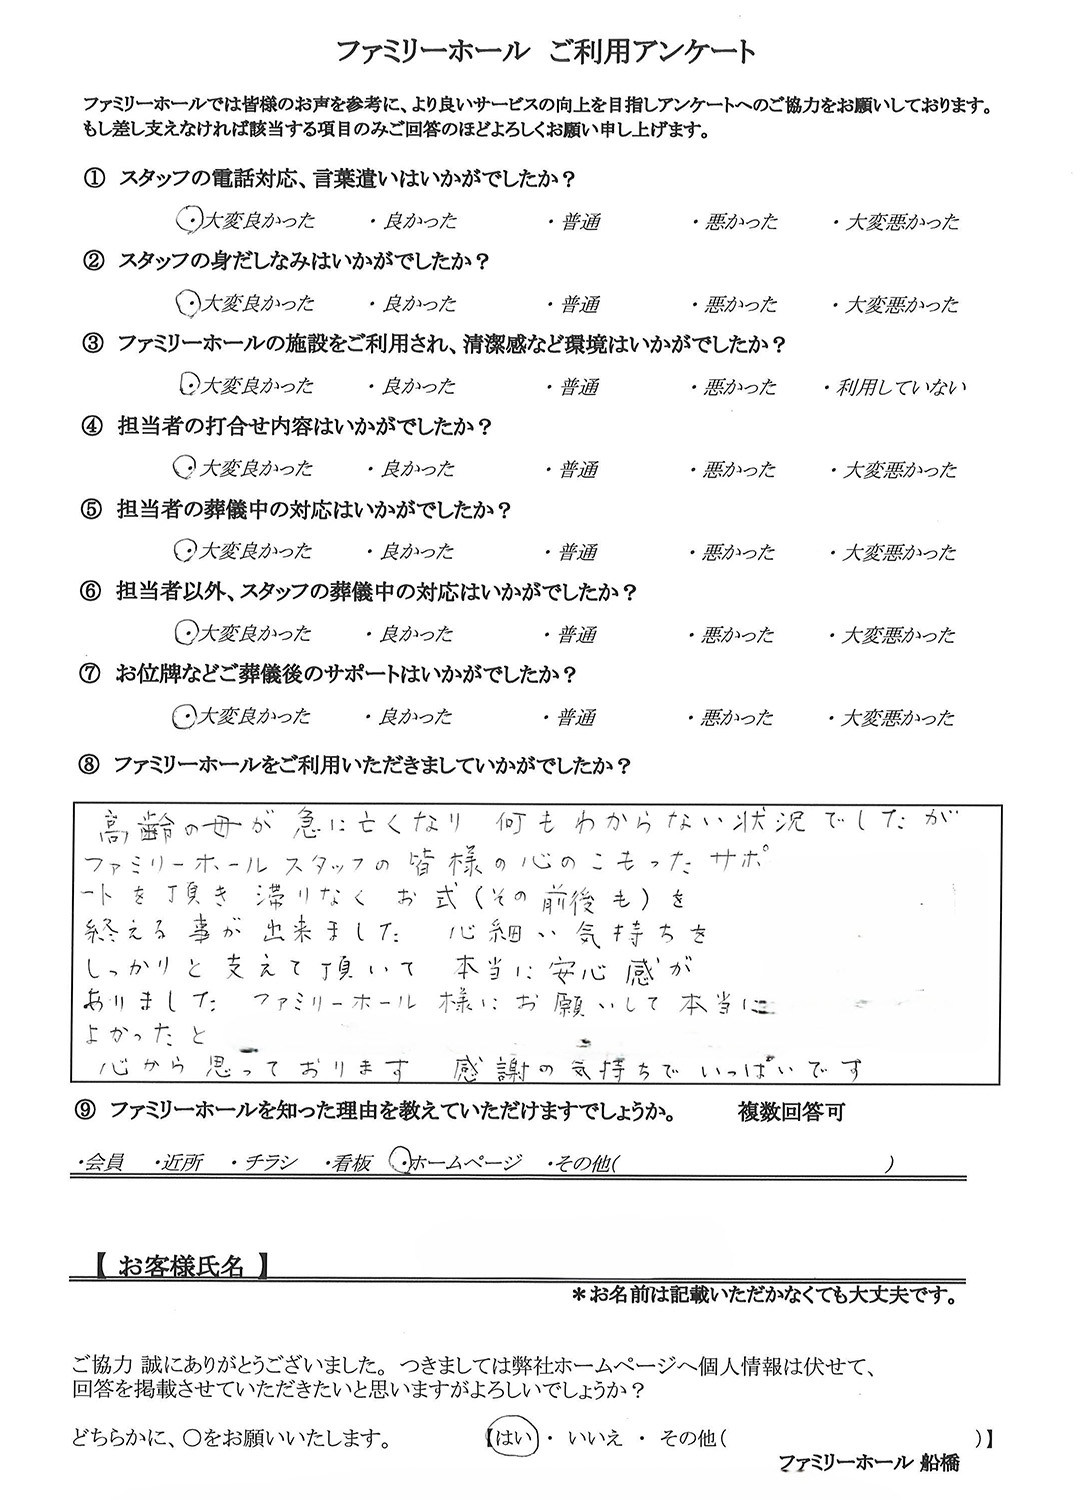 ファミリーホール　ご利用アンケート
ファミリーホールでは皆様のお声を参考に、より良いサービスの向上を目指しアンケートへのご協力をお願いしております。
もし差し支えなければ該当する項目のみご回答のほどよろしくお願い申し上げます。
① スタッフの電話対応、言葉遣いはいかがでしたか？
・大変良かった ・良かった ・普通 ・悪かった ・大変悪かった
② スタッフの身だしなみはいかがでしたか？
・大変良かった ・良かった ・普通 ・悪かった ・大変悪かった
③ ファミリーホールの施設をご利用され、清潔感など環境はいかがでしたか？
・大変良かった ・良かった ・普通 ・悪かった ・利用していない
④ 担当者の打合せ内容はいかがでしたか？
・大変良かった ・良かった ・普通 ・悪かった ・大変悪かった
⑤ 担当者の葬儀中の対応はいかがでしたか？
・大変良かった ・良かった ・普通 ・悪かった ・大変悪かった
⑥ 担当者以外、スタッフの葬儀中の対応はいかがでしたか？
・大変良かった ・良かった ・普通 ・悪かった ・大変悪かった
⑦ お位牌などご葬儀後のサポートはいかがでしたか？
・大変良かった ・良かった ・普通 ・悪かった ・大変悪かった
⑧ ファミリーホールをご利用いただきましていかがでしたか？
高齢の母が 急に亡くなり 何もわからない状況でしたが
ファミリーホールスタッフの皆様の心のこもったサポ
ートを頂き 滞りなく お式(その前後も)を
終える事が出来ました 心細い気持ちを
しっかりと支えて頂いて 本当に安心感が
ありました ファミリーホール様にお願いして本当に
よかったと
心から思っております 感謝の気持ちでいっぱいです
⑨ ファミリーホールを知った理由を教えていただけますでしょうか。 複数回答可
・会員 ・近所 ・チラシ ・看板 ・ホームページ ・その他( )
【 お客様氏名 】
＊お名前は記載いただかなくても大丈夫です。
ご協力 誠にありがとうございました。つきましては弊社ホームページへ個人情報は伏せて、
回答を掲載させていただきたいと思いますがよろしいでしょうか？
どちらかに、〇をお願いいたします。 【はい ・ いいえ ・ その他( )】
ファミリーホール 船橋